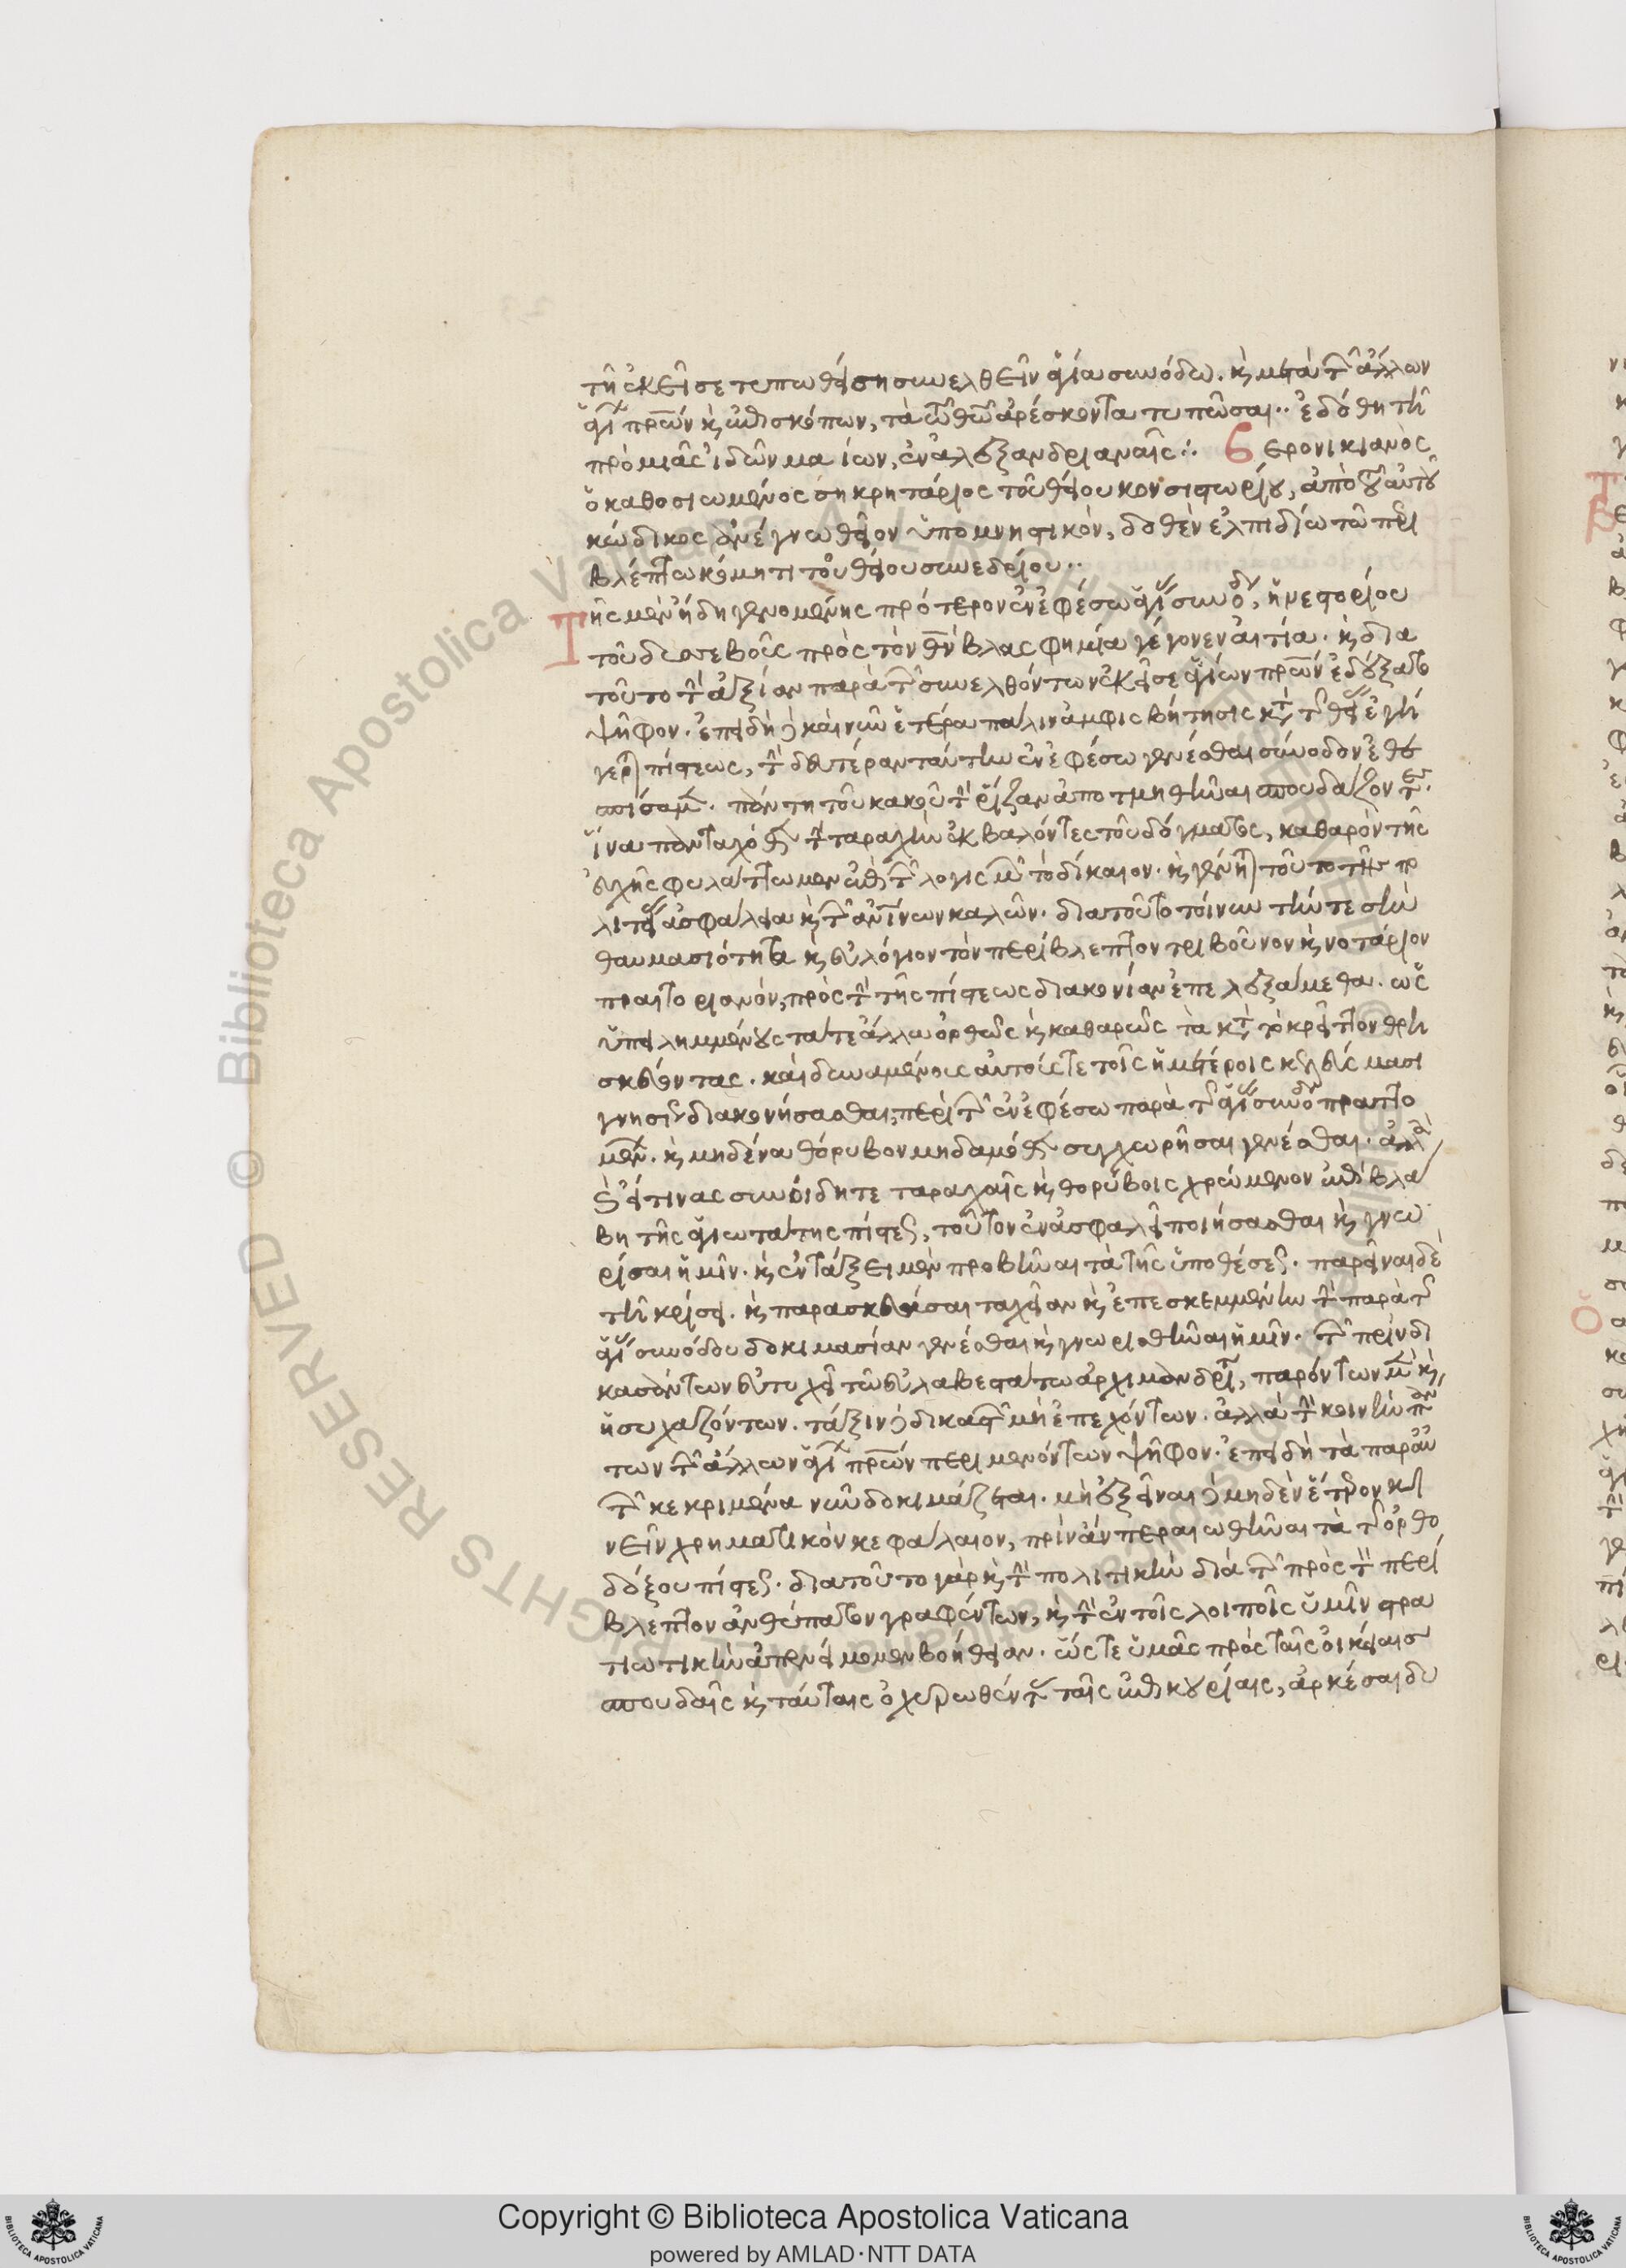 τῆ ἐκεῖσε τυπωθείση συνελθεῖν ἁγία συνόδω. κ μετὰ τῶν ἄλλων
ἁγίων πρων κ ἐπισκόπων, τὰ τῶ θῶ ἀρέσκοντα τυπῶσαι·· ἐδόθη τῆ
πρὸ μιᾶς εἰδῶν μαίων, ἐν ἀλεξανδριαναῖς: Βερονικιανὸς
ὁ καθοσιωμένος σηκρητάριος τοῦ θείου κονσιστωρίου, ἀπὸ τοῦ αὐτοῦ
κώδικος ἀνέγνω θεῖον ὑπομνηστικὸν, δοθὲν ἐλπιδίω τῶ περι
βλέπτω κόμητι τοῦ θείου συνεδρίου··
Τῆς μὲν ἤδη γενομένης πρότερον ἐν ἐφέσω ἁγίας συνόδου, ἡ νεστορίου
τοῦ δυσσεβοῦς πρὸς τὸν θν βλασφημία γέγονεν αἰτία. κ δια
τοῦτο τὴν ἀξίαν παρὰ τῶν συνελθόντων ἐκεῖσε ἁγίων πρων ἐδέξατο
ψῆφον. ἐπειδὴ δὲ καὶ νῦν ἑτέρα πάλιν ἀμφισβήτησις κατὰ τῆς θείας ἐγή
γερται πίστεως, τὴν δευτέραν ταύτην ἐν ἐφέσω γενέσθαι σύνοδον ἐθε
σπίσαμεν. πάντη τοῦ κακοῦ τὴν ῥίζαν ἀποτμηθῆναι σπουδάζοντες.
ἵνα πανταχόθεν τὴν ταραχὴν ἐκβαλόντες τοῦ δόγματος, καθαρὸν τῆς
εὐχῆς φυλάττωμεν ἐπὶ τῶν λογισμῶν τὸ δίκαιον. κ γένηται τοῦτο τῆς πο
λιτείας ἀσφάλεια κ τῶν ἀνίνων καλῶν. διὰ τοῦτο τοίνυν τήν τε σὴν
θαυμασιότητα κ εὐλόγιον τὸν περίβλεπτον τριβοῦνον κ νοτάριον
πραιτοριανόν, πρὸς τὴν τῆς πίστεως διακονίαν ἐπελεξάμεθα. ὡς
ὑπειλημμένους τά τε ἄλλα ὀρθῶς κ καθαρῶς τὰ κατὰ τὸ κρεῖττον θρη
σκεύοντας. καὶ δυναμένους αὐτοίς τε τοῖς ἡμετέροις κελεύσμασι
γνησίως διακονήσασθαι, περὶ τῶν ἐν ἐφέσω παρὰ τῆς ἁγίας συνόδου πραττο
μένων. κ μηδένα θόρυβον μηδαμόθεν συγχωρῆσαι γενέσθαι. ἀλλὰ
κ εἴ τινας συνείδητε ταραχαῖς κ θορύβοις χρώμενον ἐπὶ βλά
βη τῆς ἁγιωτάτης πίστεως, τοῦτον ἐν ἀσφαλεῖ ποιήσασθαι κ γνω
ρίσαι ἡμῖν. κ ἐν τάξει μὲν προβῆναι τὰ τῆς ὑποθέσεως. παρεῖναι δὲ
τῆ κρίσει. κ παρασκευάσαι ταχεῖαν κ ἐπεσκεμμένην τὴν παρὰ τῆς
ἁγίας συνόδου δοκιμασίαν γενέσθαι κ γνωρισθῆναι ἡμῖν. τῶν πρὶν δι
κασάντων εὐτυχεῖ τῶ εὐλαβεστάτω ἀρχιμανδρίτη, παρόντων μὲν κ
ἡσυχαζόντων. τάξιν δὲ δικαστῶν μὴ ἐπεχόντων. ἀλλὰ τὴν κοινὴν πάν
των τῶν ἄλλων ἁγίων πρων περιμενόντων ψῆφον. ἐπειδὴ τὰ παρ' αὐ
τῶν κεκριμένα νῦν δοκιμάζεται. μὴ ἐξεῖναι δὲ μηδὲν ἕτερον κι
νεῖν χρηματικὸν κεφάλαιον, πρὶν ἂν περαιωθῆναι τὰ τῆς ὀρθο
δόξου πίστεως. διὰ τοῦτο γὰρ κ τὴν πολιτικὴν διὰ τῶν πρὸς τὸν περί
βλεπτον ἀνθύπατον γραφέντων, κ τὴν ἐν τοῖς λοιποῖς ὑμῖν στρα
τιωτικὴν ἀπενείμαμεν βοήθειαν. ὥστε ὑμᾶς πρὸς ταῖς οἰκείαις
σπουδαῖς κ ταύταις ὀχυρωθέντας ταῖς ἐπικουρίαις, ἀρκέσαι δυ